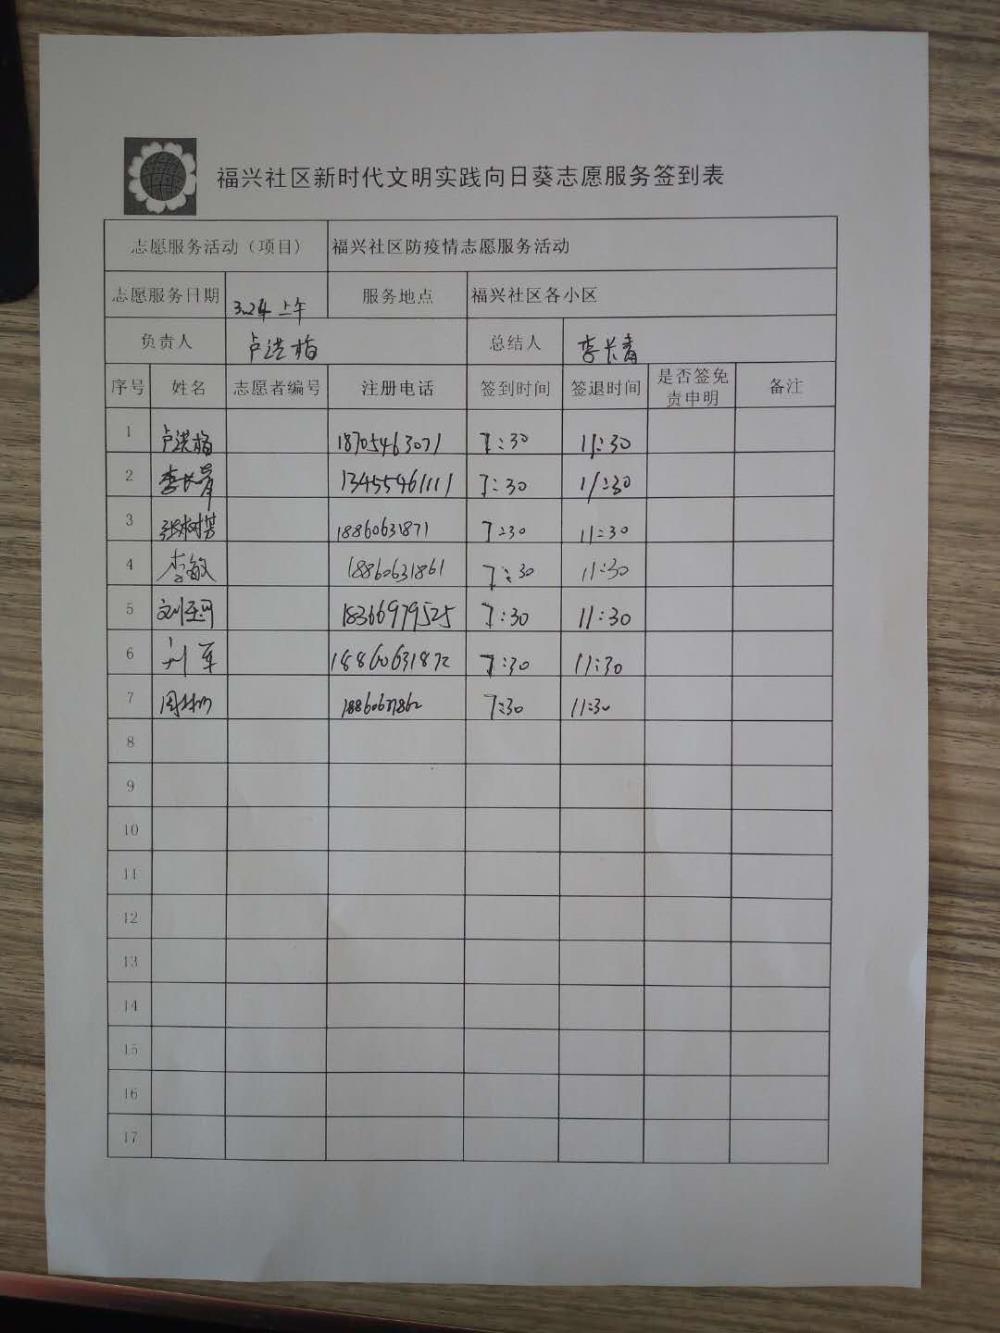 福兴社区新时代文明实践向日葵志愿服务签到表
志愿服务活动（项目） 福兴社区防疫情志愿服务活动
志愿服务日期 3.24 上午 服务地点 福兴社区各小区
负责人 卢洪梅 总结人 李长青
序号 姓名 志愿者编号 注册电话 签到时间 签退时间 是否签免责申明 备注
1 卢洪梅 18705463071 7:30 11:30
2 李长青 13455461111 7:30 11:30
3 张树芳 18860631871 7:30 11:30
4 李敏 18860631861 7:30 11:30
5 18366979525 7:30 11:30
6 刘军 18860631872 7:30 11:30
7 7:30 11:30
8
9
10
11
12
13
14
15
16
17